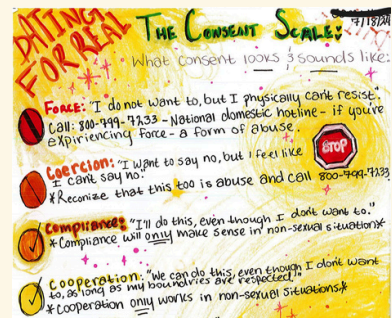 DATING FOR REAL
THE CONSENT SCALE:
7/18/24
What consent looks & sounds like:
FORCE: "I do not want to, but I physically can't resist".
Call: 800-799-7233 - National domestic hotline - if you're
expiriencing force - a form of abuse.
Coercion: "I want to say no, but I feel like
I can't say no."
*Reconize that this too is abuse and call 800-799-7233
STOP
Compliance: "I'll do this, even though I don't want to."
*Compliance will only make sense in non-sexual situation*
Cooperation: "We can do this, even though I don't want
to, as long as my boundries are respected."
*Cooperation only works in non-sexual situations.*